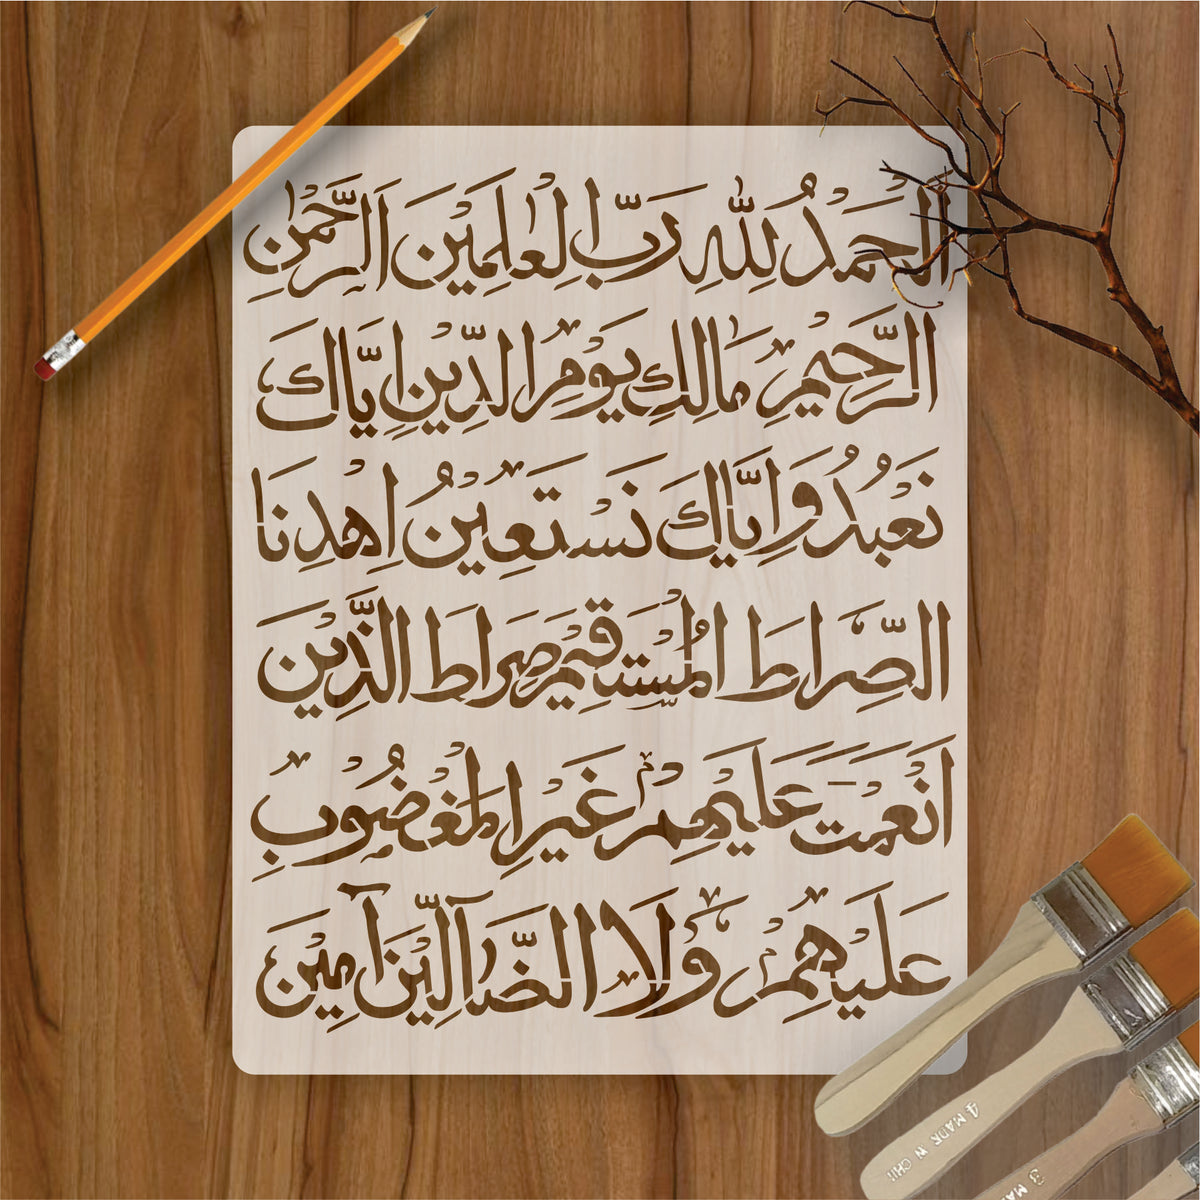 اَلْحَمْدُ لِلّٰهِ رَبِّ الْعٰلَمِيْنَ اَلرَّحْمٰنِ
الرَّحِيْمِ مَالِكِ يَوْمِ الدِّيْنِ اِيَّاكَ
نَعْبُدُ وَاِيَّاكَ نَسْتَعِيْنُ اِهْدِنَا
الصِّرَاطَ الْمُسْتَقِيْمَ صِرَاطَ الَّذِيْنَ
اَنْعَمْتَ عَلَيْهِمْ غَيْرِ الْمَغْضُوْبِ
عَلَيْهِمْ وَلَا الضَّآلِّيْنَ آمِيْنَ
4 MADE IN CHI
3 MA